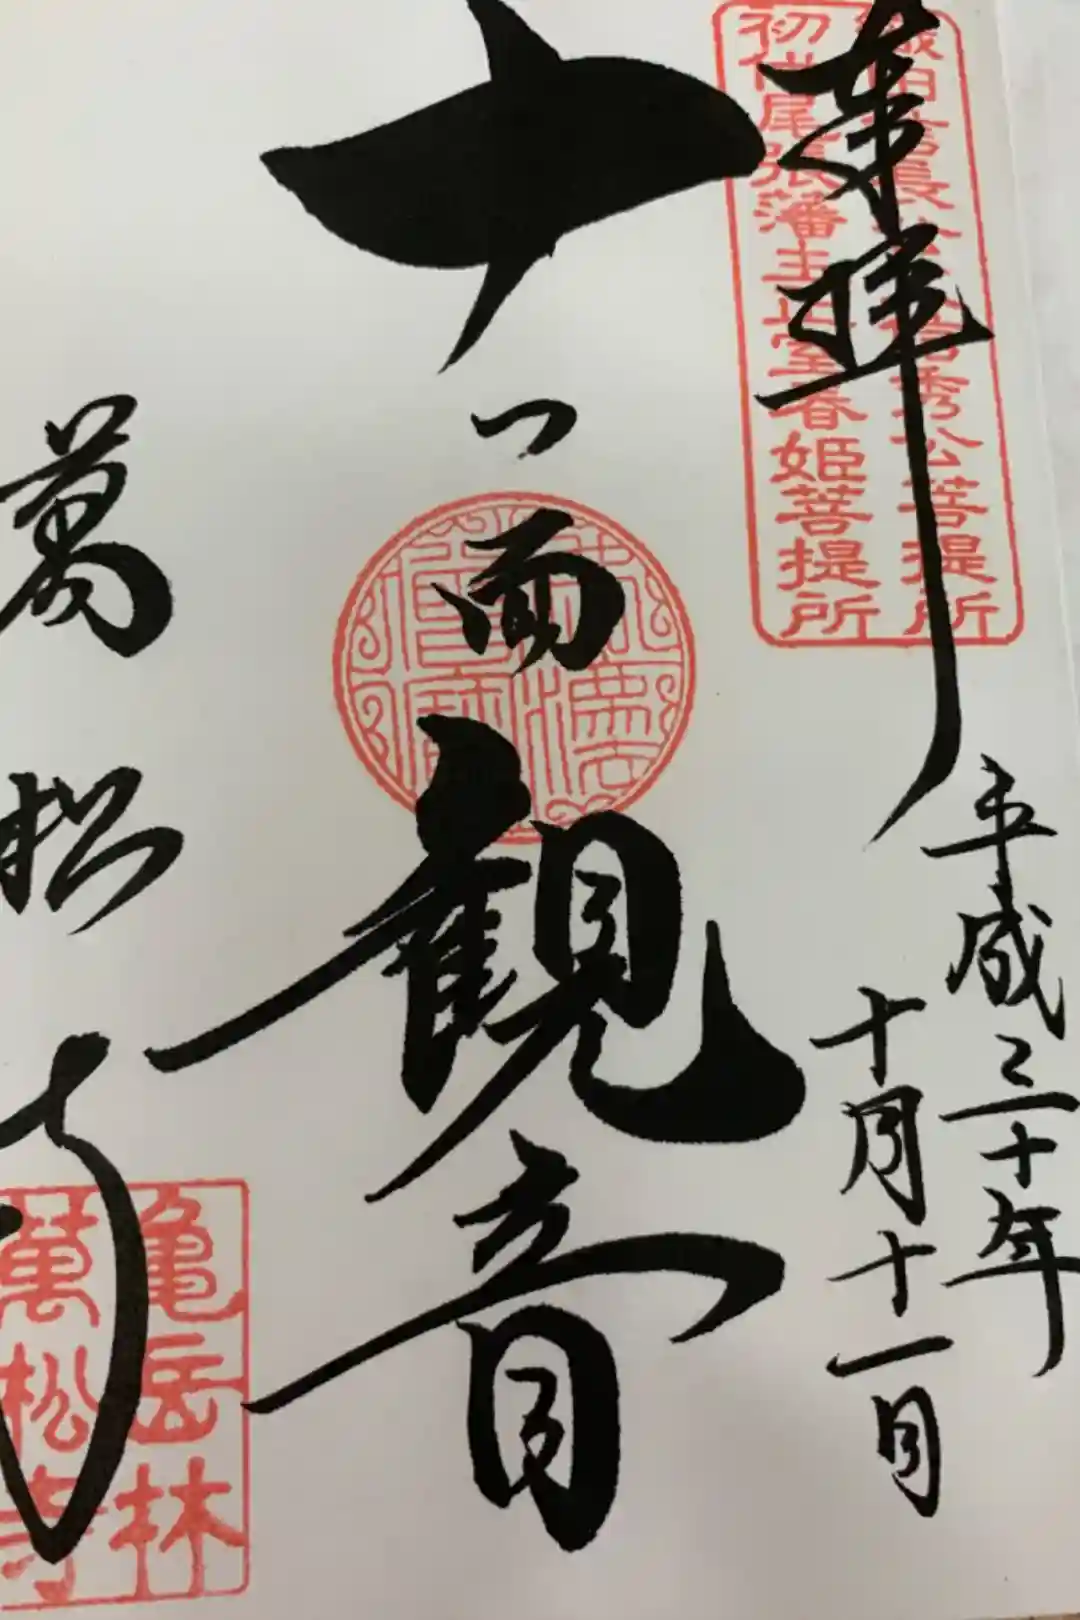 奉拝
織田信長公父信秀公菩提所
初代尾張藩主正室春姫菩提所
平成三十年
十月十一日
十一面観音
萬松寺
亀岳林
萬松寺